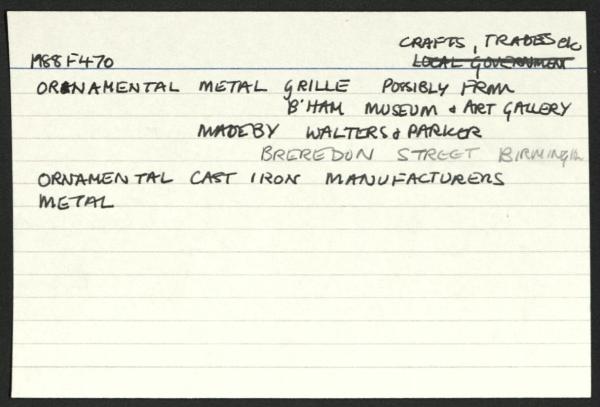 CRAFTS, TRADES etc
1988F470 LOCAL GOVERNMENT
ORNAMENTAL METAL GRILLE POSSIBLY FROM
B'HAM MUSEUM & ART GALLERY
MADE BY WALTERS & PARKER
BREREDON STREET BIRMINGHM
ORNAMENTAL CAST IRON MANUFACTURERS
METAL